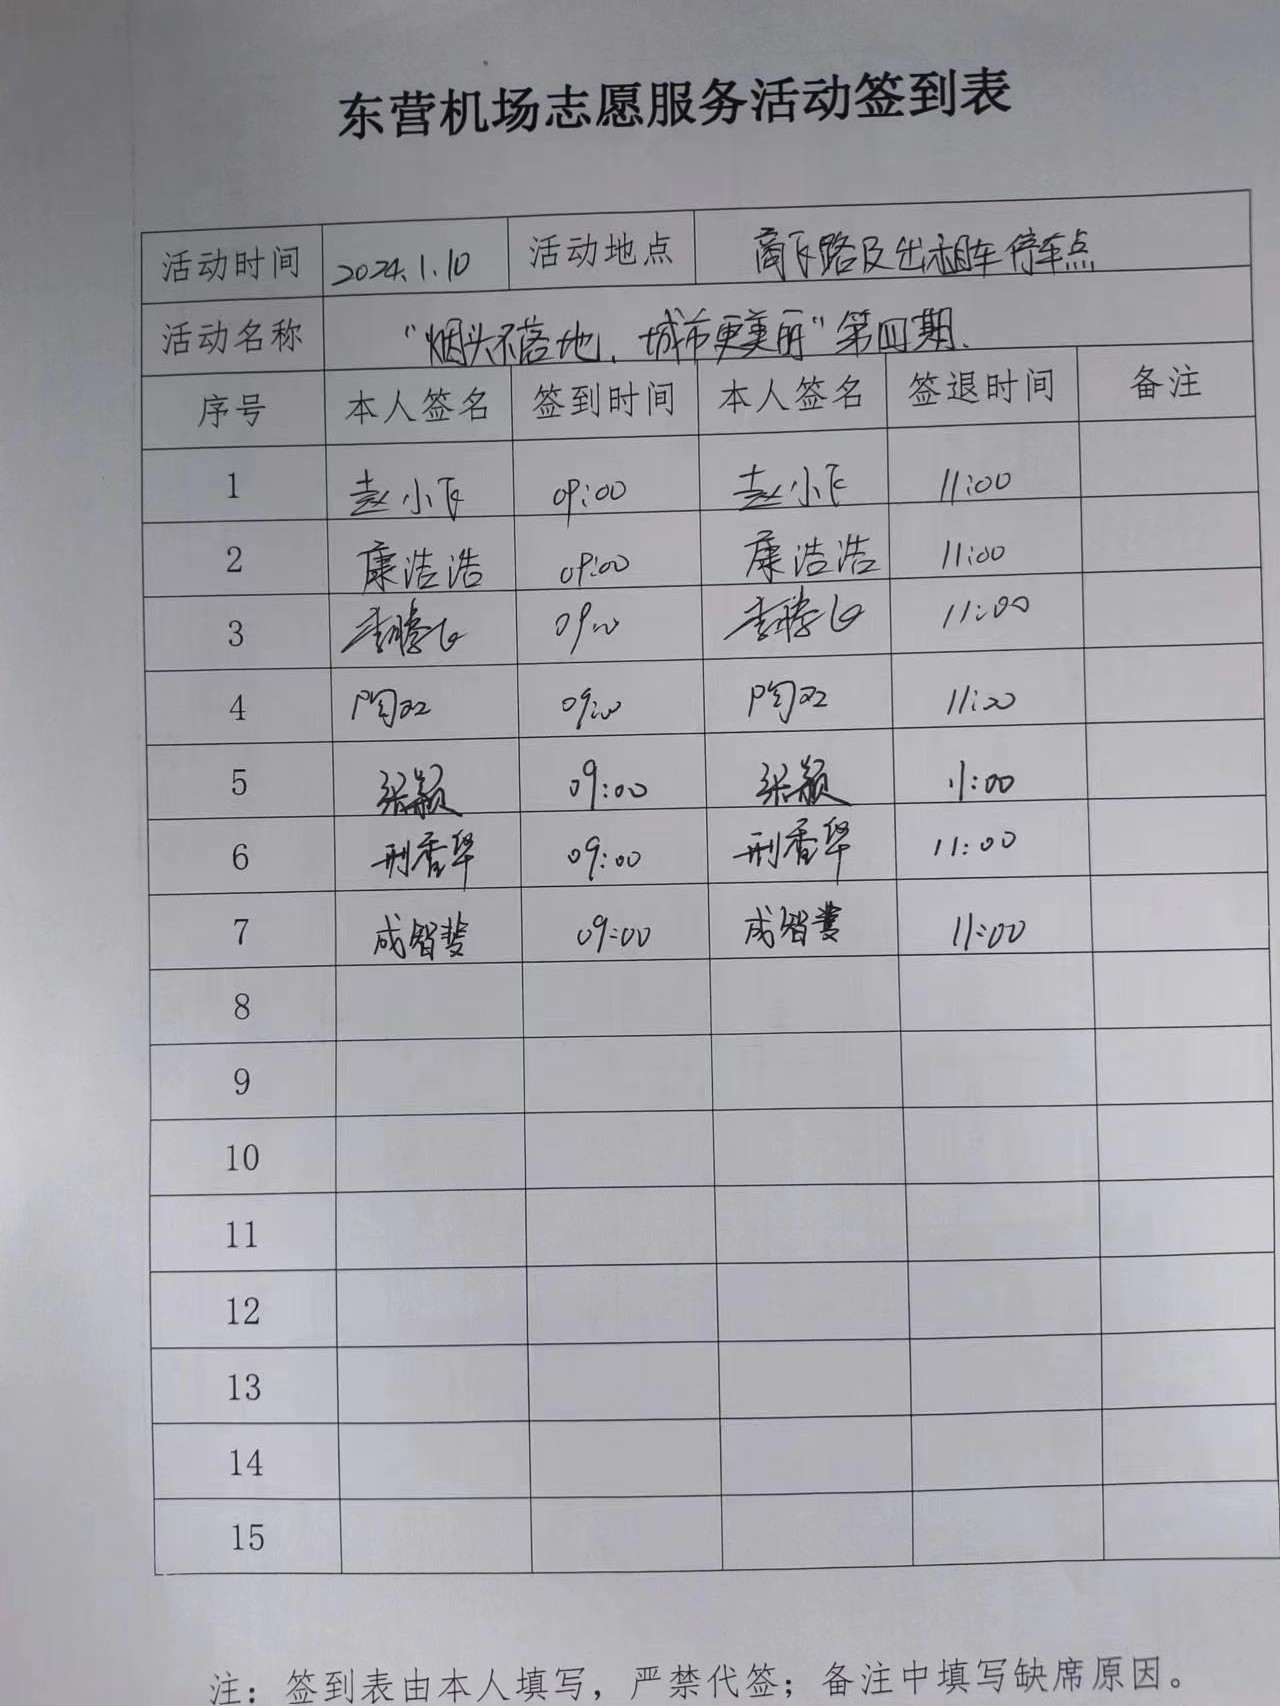 东营机场志愿服务活动签到表
活动时间 2024.1.10 活动地点 商飞路及出租车停车点
活动名称 “烟头不落地，城市更美丽”第四期.
序号 本人签名 签到时间 本人签名 签退时间 备注
1 赵小飞 09:00 赵小飞 11:00
2 康浩浩 09:00 康浩浩 11:00
3 李腾飞 09:00 李腾飞 11:00
4 陶双 09:00 陶双 11:00
5 张颖 09:00 张颖 11:00
6 邢香华 09:00 邢香华 11:00
7 成智斐 09:00 成智斐 11:00
8
9
10
11
12
13
14
15
注：签到表由本人填写，严禁代签；备注中填写缺席原因。